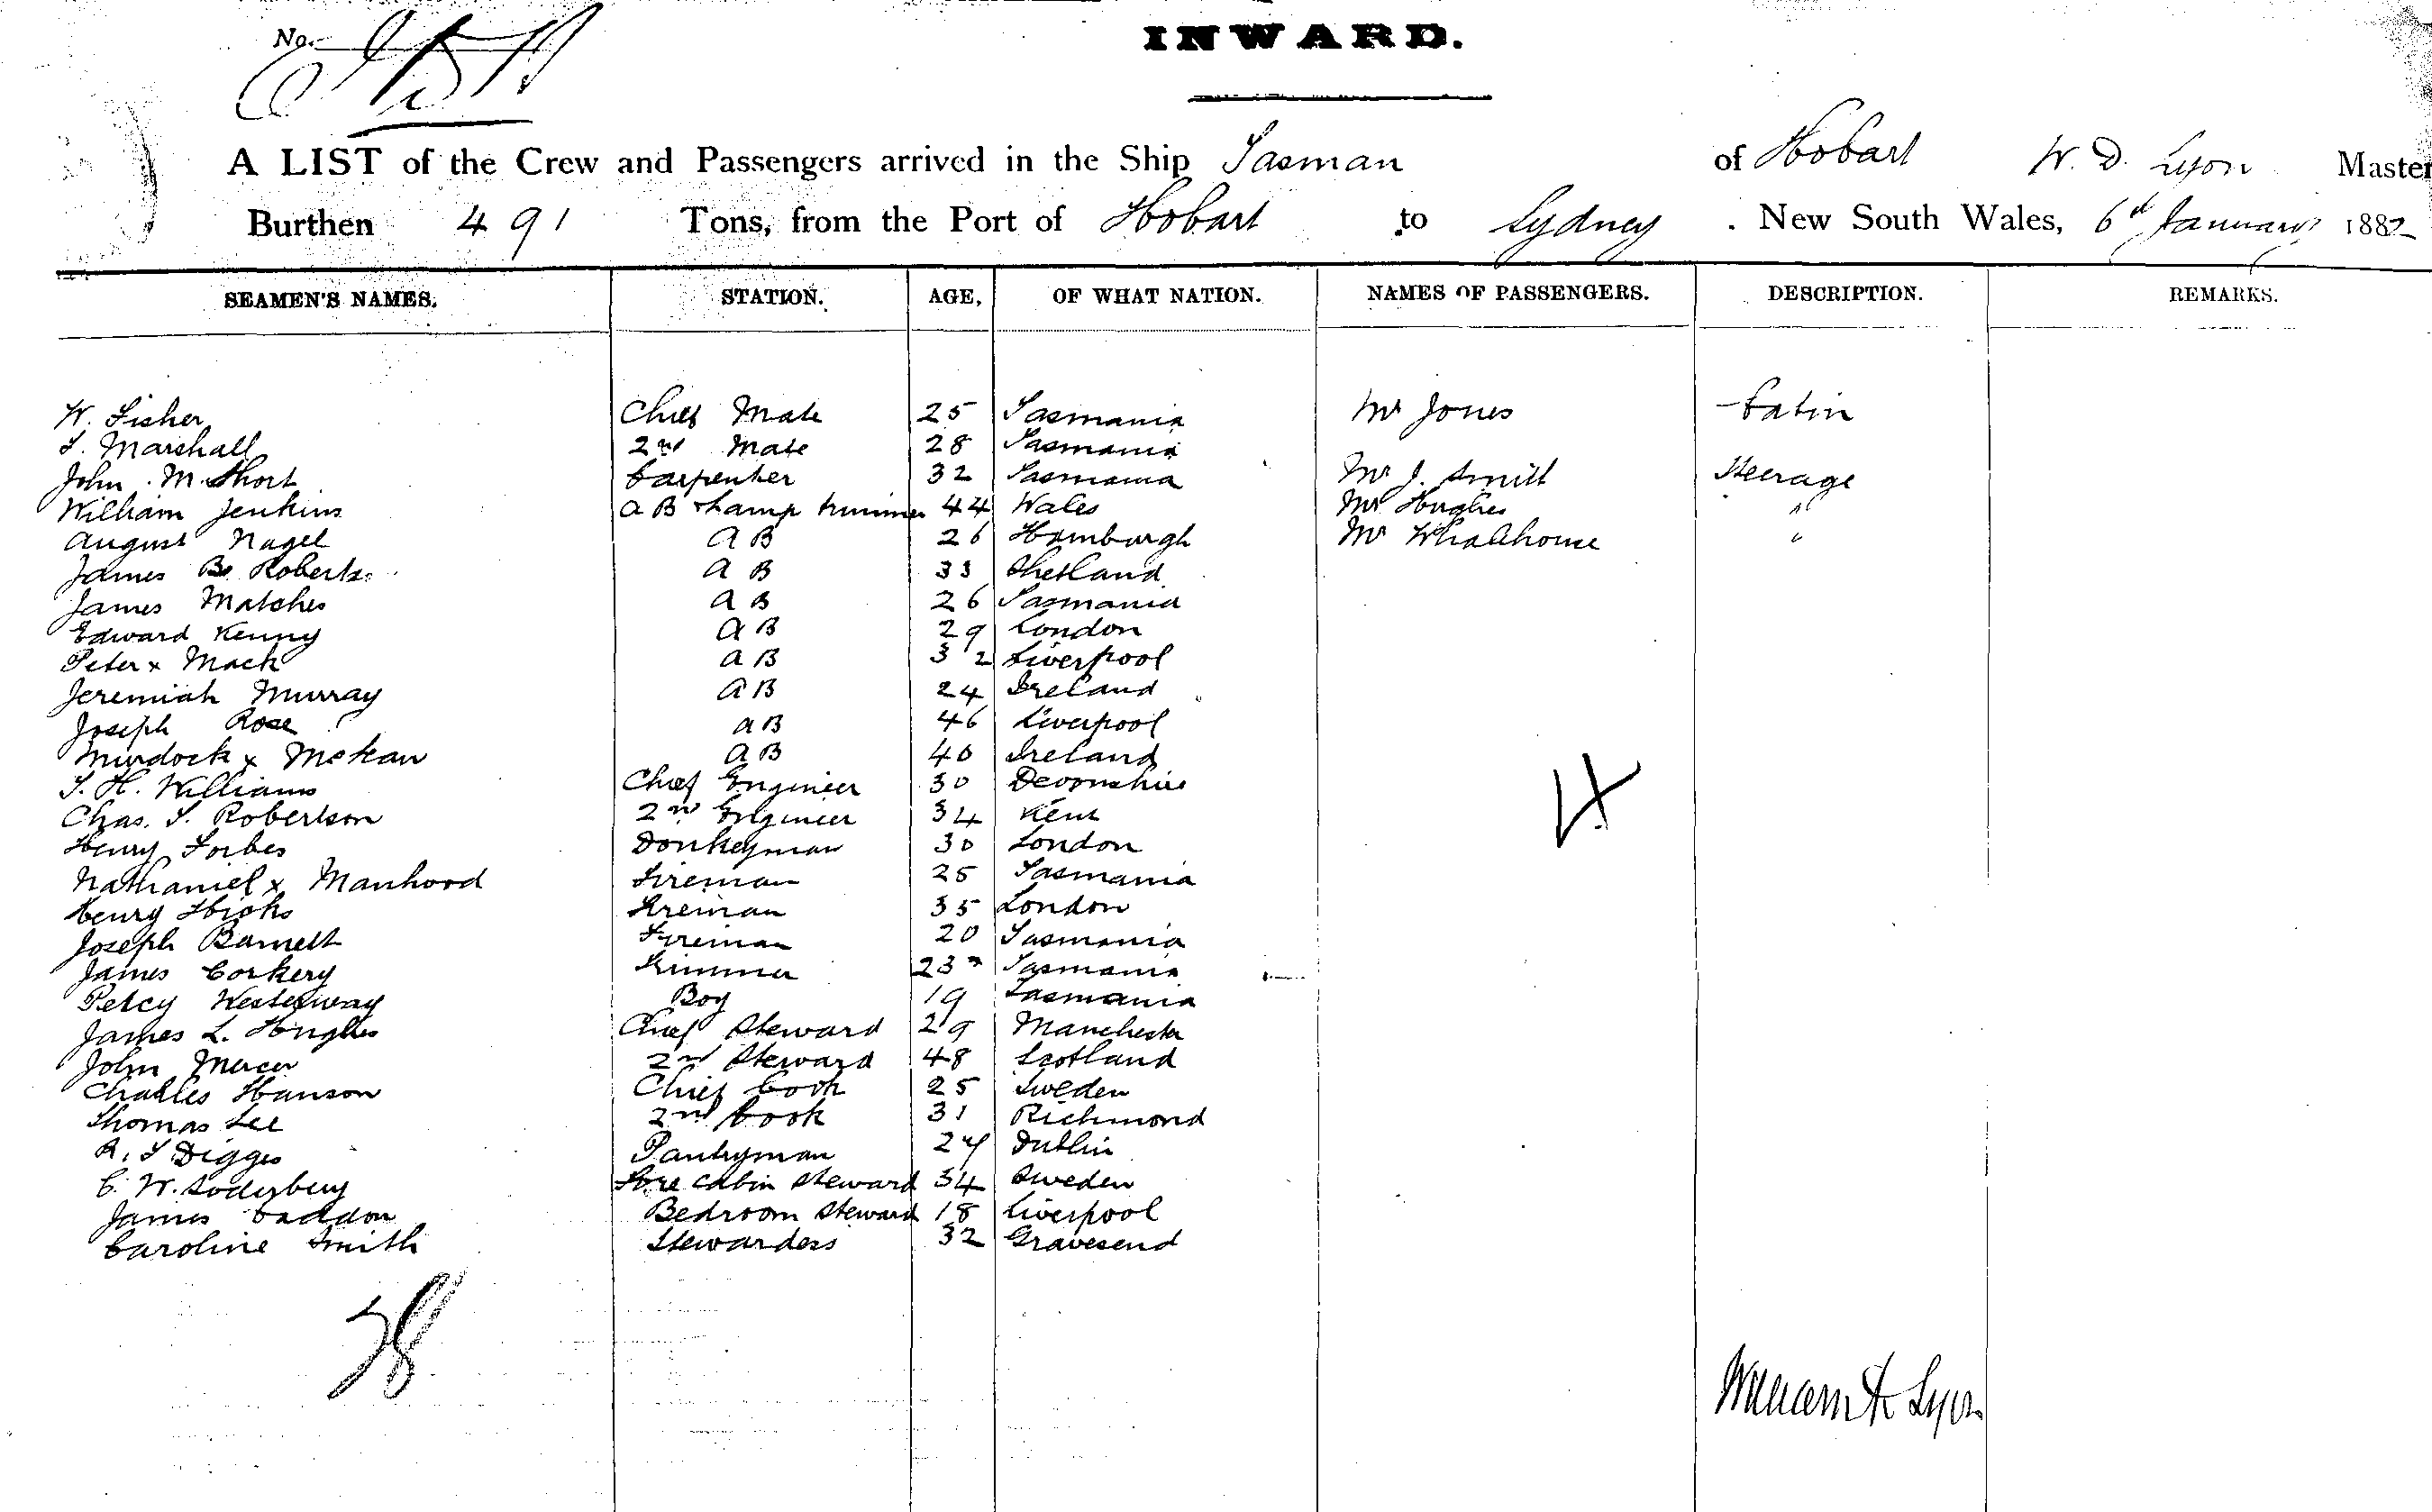 No.
INWARD.
A LIST of the Crew and Passengers arrived in the Ship Tasman of Hobart W. D. Lyon Master
Burthen 491 Tons, from the Port of Hobart to Sydney . New South Wales, 6th January 1882
SEAMEN'S NAMES. STATION. AGE, OF WHAT NATION. NAMES OF PASSENGERS. DESCRIPTION. REMARKS.
W. Fisher Chief Mate 25 Tasmania Mr Jones Cabin
T. Marshall 2nd Mate 28 Tasmania
John M. Short Carpenter 32 Tasmania Mr J. Smith Steerage
William Jenkins A B & Lamp trimmer 44 Wales Mr Hughes "
August Nagel A B 26 Hamburgh Mr "
James B. Roberts A B 33 Shetland
James Matches A B 26 Tasmania
Edward Kenny A B 29 London
Peter x Mack A B 32 Liverpool
Jeremiah Murray A B 24 Ireland
Joseph Rose A B 46 Liverpool
Murdock x McKean A B 40 Ireland
T. H. Williams Chief Engineer 30 Devonshire
Chas. T. Robertson 2nd Engineer 34 Kent
Henry Forbes Donkeyman 30 London
Nathaniel x Manhood Fireman 25 Tasmania
Henry Hicks Fireman 35 London
Joseph Barnett Fireman 20 Tasmania
James Corkery Trimmer 23 Tasmania
Percy Westerway Boy 19 Tasmania
James L. Hughes Chief Steward 29 Manchester
John Mercer 2nd Steward 48 Scotland
Charles Hanson Chief Cook 25 Sweden
Thomas Lee 2nd Cook 31 Richmond
A. T Digges Pantryman 24 Dublin
C. W. Soderberg Fore Cabin Steward 34 Sweden
James Caddon Bedroom Steward 18 Liverpool
Caroline Smith Stewardess 32 Gravesend
4
28
William D Lyon